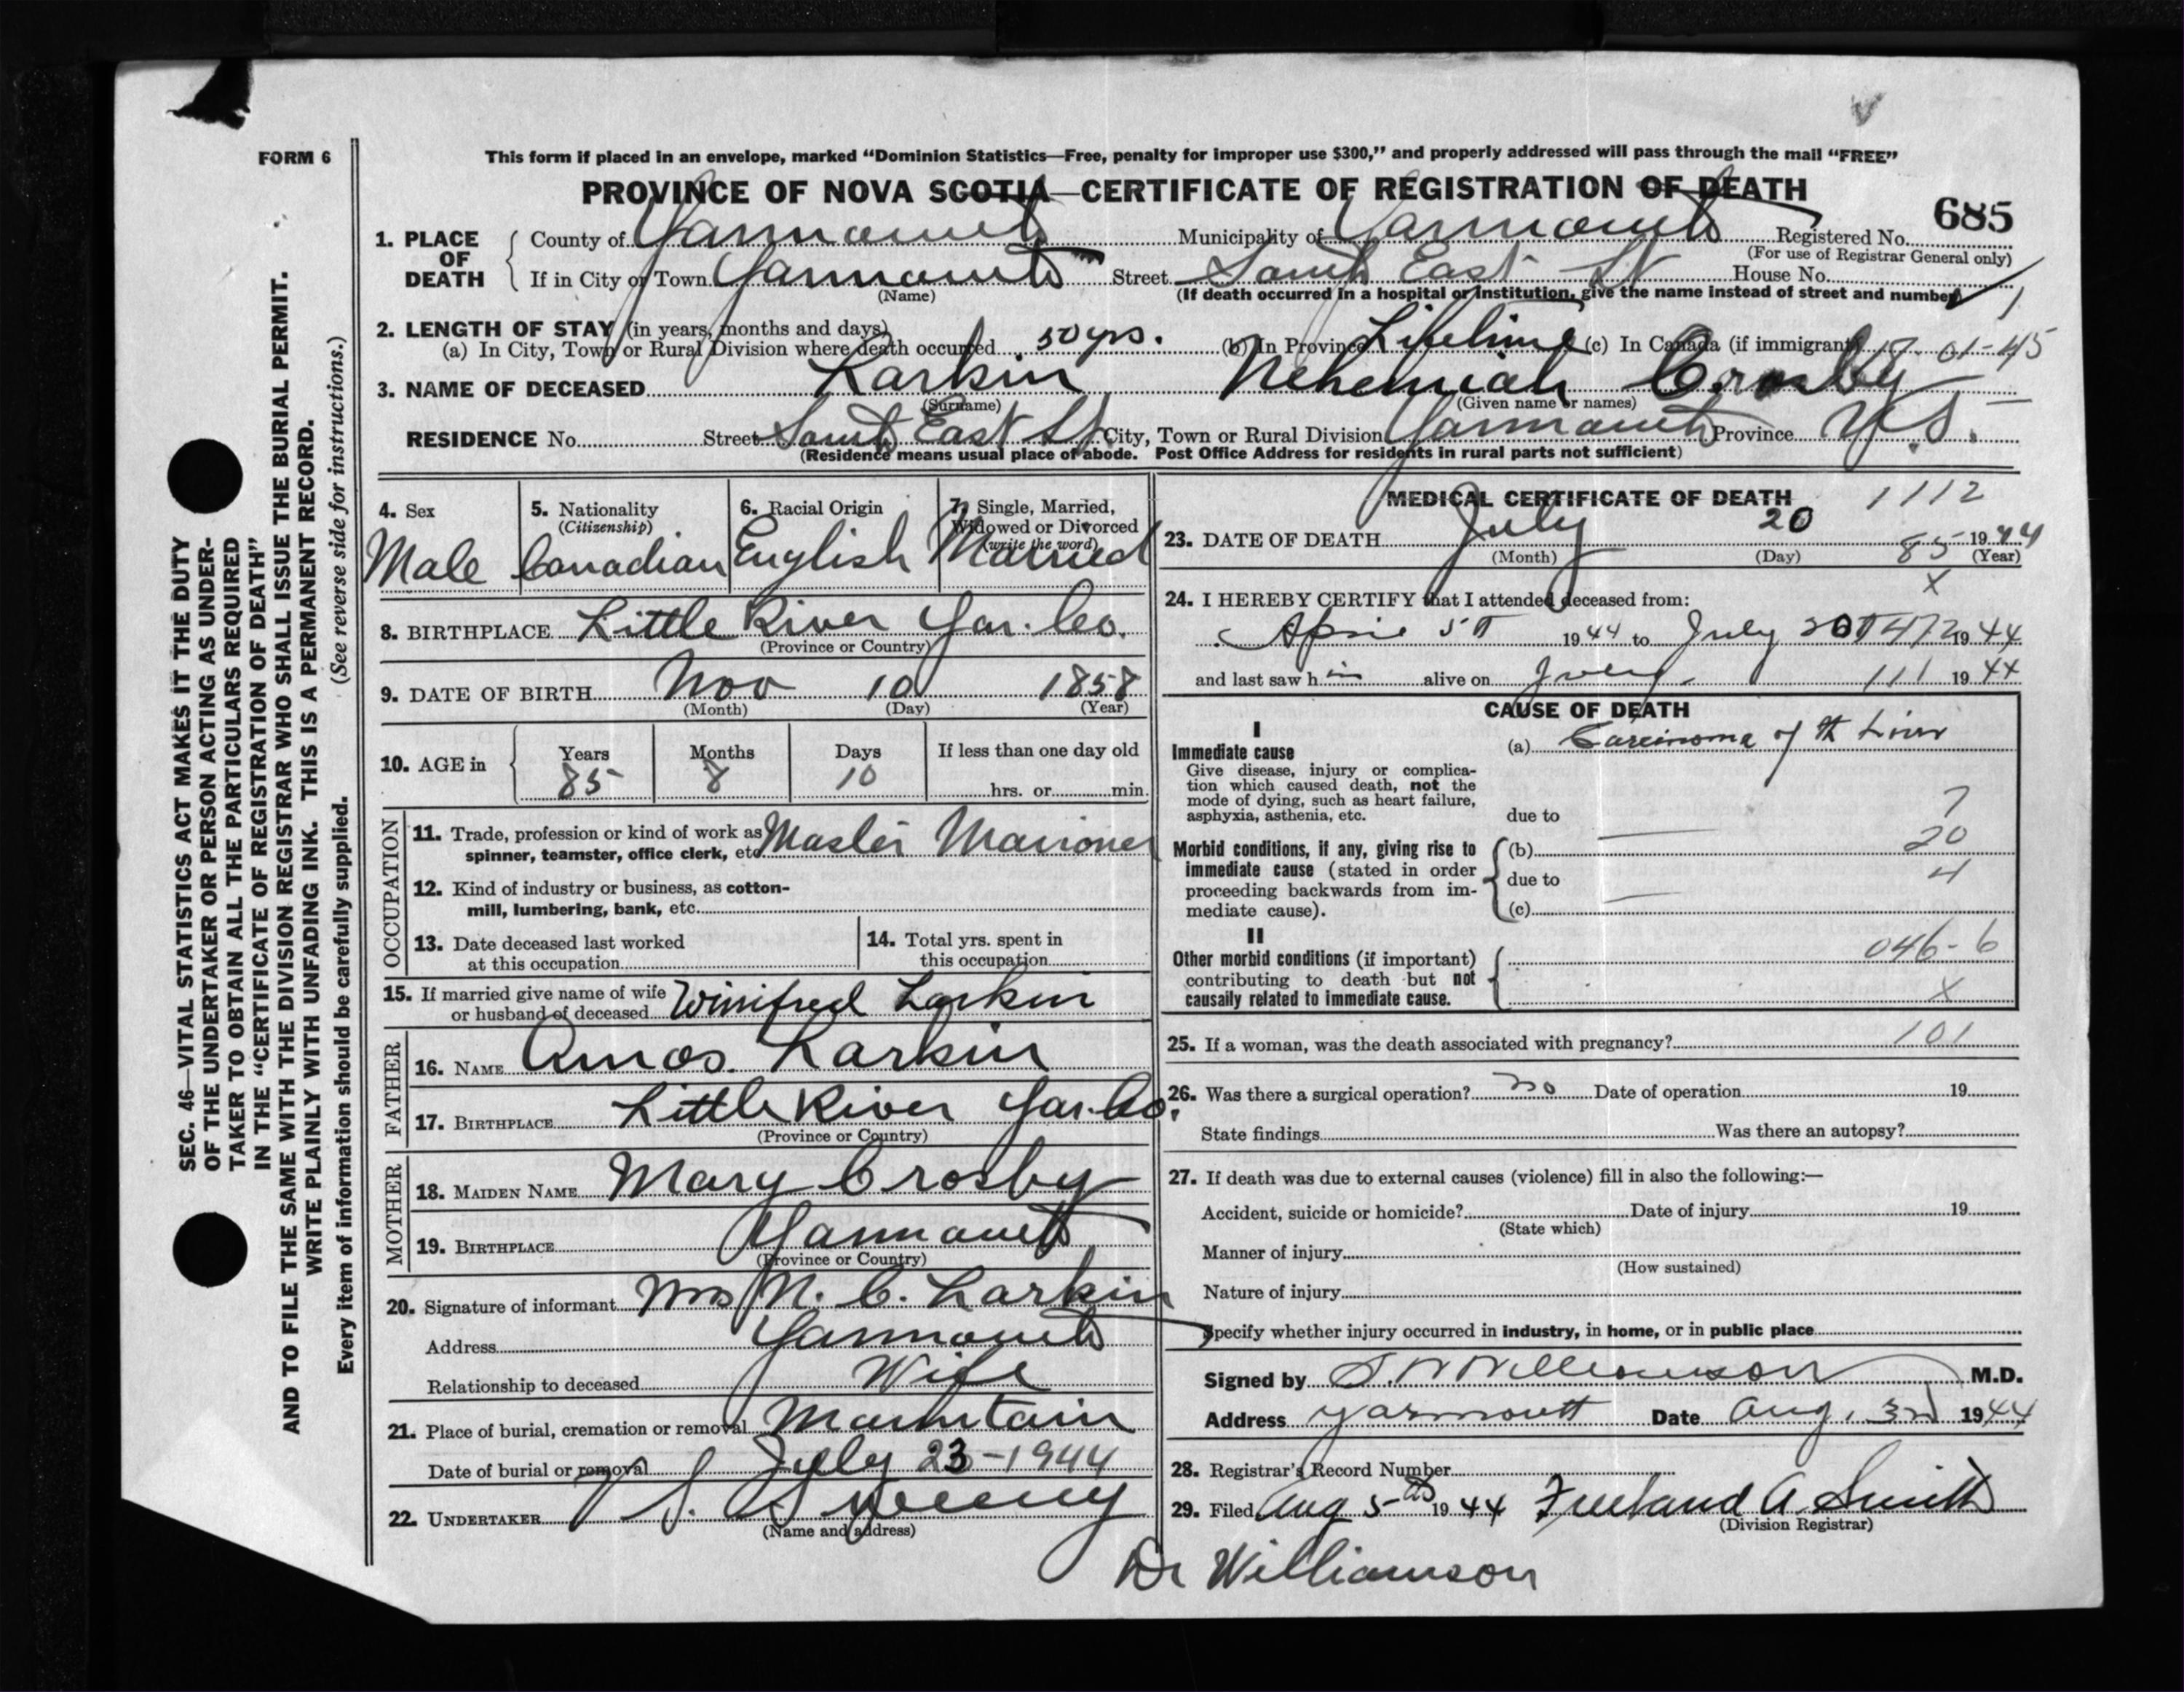 FORM 6
This form if placed in an envelope, marked “Dominion Statistics—Free, penalty for improper use $300,” and properly addressed will pass through the mail “FREE”
PROVINCE OF NOVA SCOTIA—CERTIFICATE OF REGISTRATION OF DEATH
685
1. PLACE OF DEATH County of Yarmouth Municipality of Yarmouth Registered No.
(For use of Registrar General only)
If in City or Town Yarmouth Street South East St House No.
(Name) (If death occurred in a hospital or institution, give the name instead of street and number) 1
2. LENGTH OF STAY (in years, months and days)
(a) In City, Town or Rural Division where death occurred 50 yrs. (b) In Province Lifetime (c) In Canada (if immigrant) 01-45
3. NAME OF DECEASED Larkin Nehemiah Crosby
(Surname) (Given name or names)
RESIDENCE No. Street South East St. City, Town or Rural Division Yarmouth Province N.S.
(Residence means usual place of abode. Post Office Address for residents in rural parts not sufficient)
4. Sex Male
5. Nationality (Citizenship) Canadian
6. Racial Origin English
7. Single, Married, Widowed or Divorced (write the word) Married
8. BIRTHPLACE Little River Yar. Co.
(Province or Country)
9. DATE OF BIRTH Nov 10 1858
(Month) (Day) (Year)
10. AGE in Years Months Days If less than one day old
85 8 10 hrs. or min.
OCCUPATION
11. Trade, profession or kind of work as Master Mariner
spinner, teamster, office clerk, etc.
12. Kind of industry or business, as cotton-
mill, lumbering, bank, etc.
13. Date deceased last worked
at this occupation
14. Total yrs. spent in
this occupation
15. If married give name of wife
or husband of deceased Winifred Larkin
FATHER
16. NAME Amos Larkin
17. BIRTHPLACE Little River Yar. Co.
(Province or Country)
MOTHER
18. MAIDEN NAME Mary Crosby
19. BIRTHPLACE Yarmouth
(Province or Country)
20. Signature of informant Mrs N. C. Larkin
Address Yarmouth
Relationship to deceased Wife
21. Place of burial, cremation or removal Mountain
Date of burial or removal July 23-1944
22. UNDERTAKER V. S. Sweeny
(Name and address)
MEDICAL CERTIFICATE OF DEATH 1112
23. DATE OF DEATH July 20 1944
(Month) (Day) 85 (Year)
X
24. I HEREBY CERTIFY that I attended deceased from:
April 5 1944 to July 20 472 1944
and last saw him alive on July 111 1944
CAUSE OF DEATH
I
Immediate cause (a) Carcinoma of the Liver
Give disease, injury or complica-
tion which caused death, not the
mode of dying, such as heart failure,
asphyxia, asthenia, etc. due to 7
Morbid conditions, if any, giving rise to (b) 20
immediate cause (stated in order
proceeding backwards from im- due to 4
mediate cause). (c)
II
Other morbid conditions (if important) 046-6
contributing to death but not
causally related to immediate cause. X
25. If a woman, was the death associated with pregnancy? 101
26. Was there a surgical operation? no Date of operation 19
State findings Was there an autopsy?
27. If death was due to external causes (violence) fill in also the following:—
Accident, suicide or homicide? Date of injury 19
(State which)
Manner of injury
(How sustained)
Nature of injury
Specify whether injury occurred in industry, in home, or in public place
Signed by S.W. Williamson M.D.
Address Yarmouth Date Aug. 3rd 1944
28. Registrar's Record Number
29. Filed Aug 5th 1944 Freeland A. Smith
(Division Registrar)
Dr Williamson
SEC. 46—VITAL STATISTICS ACT MAKES IT THE DUTY
OF THE UNDERTAKER OR PERSON ACTING AS UNDER-
TAKER TO OBTAIN ALL THE PARTICULARS REQUIRED
IN THE “CERTIFICATE OF REGISTRATION OF DEATH”
AND TO FILE THE SAME WITH THE DIVISION REGISTRAR WHO SHALL ISSUE THE BURIAL PERMIT.
WRITE PLAINLY WITH UNFADING INK. THIS IS A PERMANENT RECORD.
Every item of information should be carefully supplied. (See reverse side for instructions.)